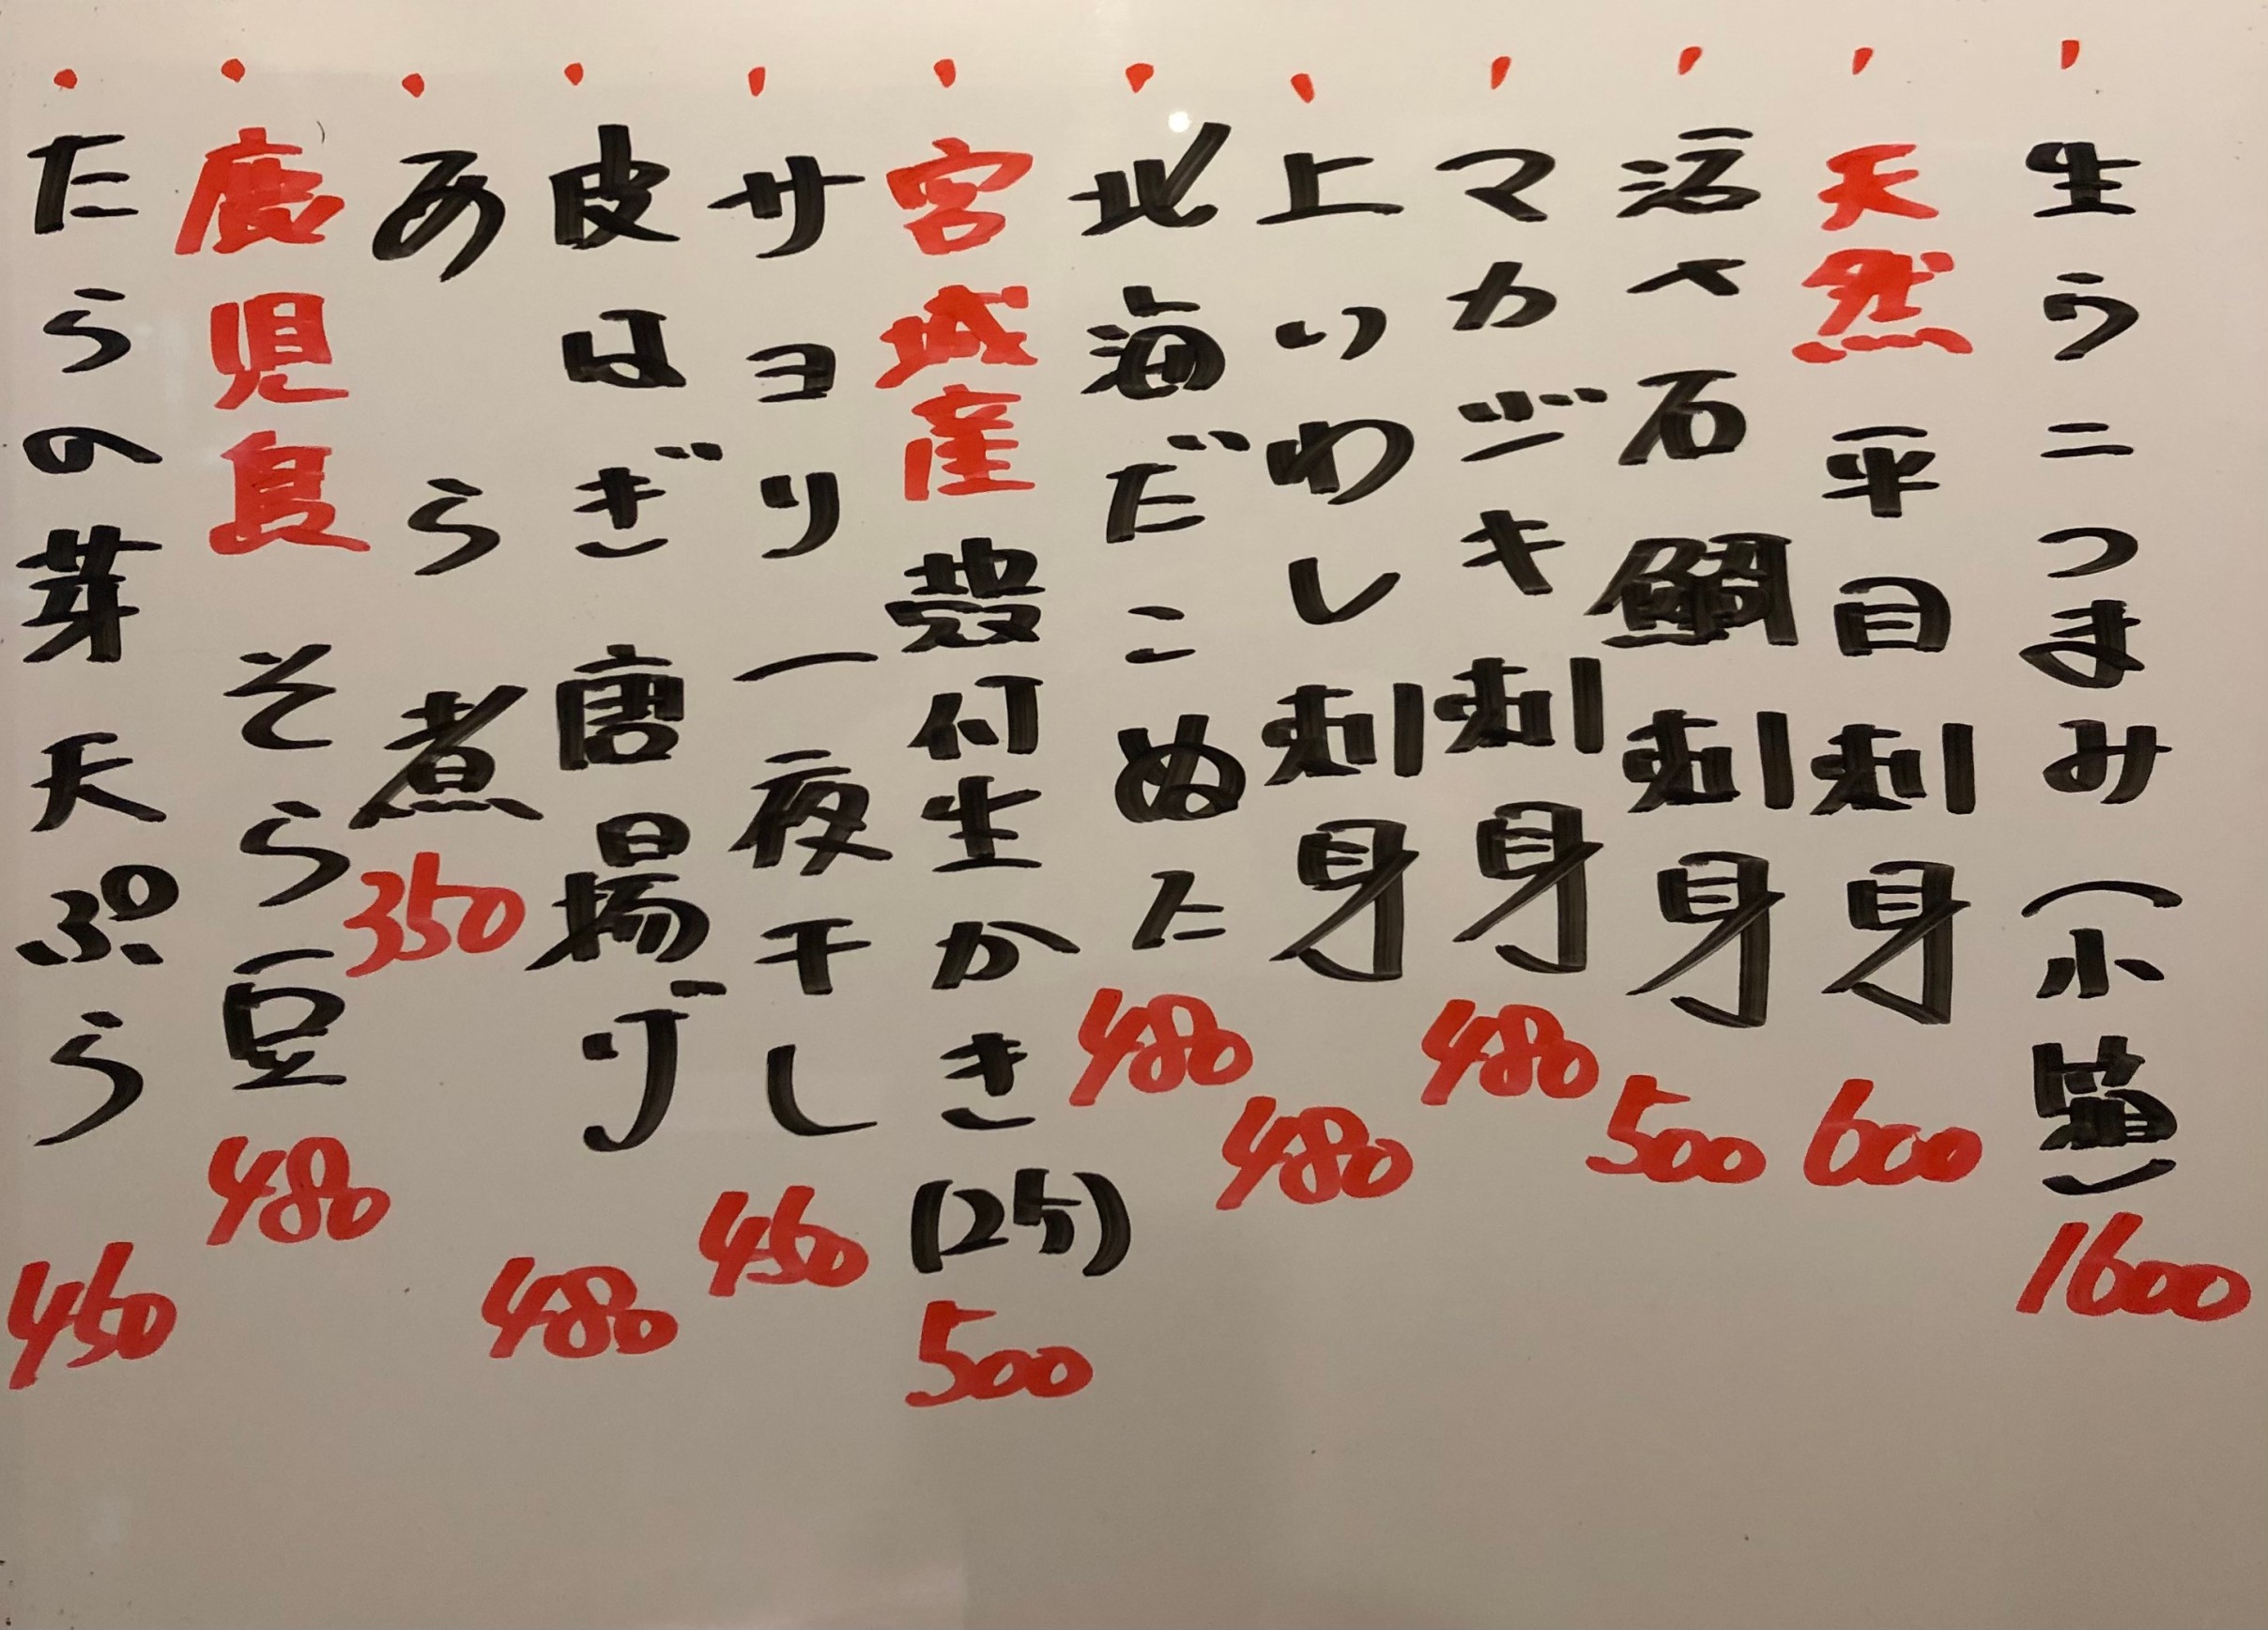 生うにつまみ(小箱)1600
天然平目刺身600
活〆石鯛刺身500
マカジキ刺身480
上いわし刺身480
北海だこぬた480
宮城産殻付生かき(2ケ)500
サヨリ一夜干し450
皮はぎ唐揚げ480
あら煮350
鹿児島そら豆480
たらの芽天ぷら450